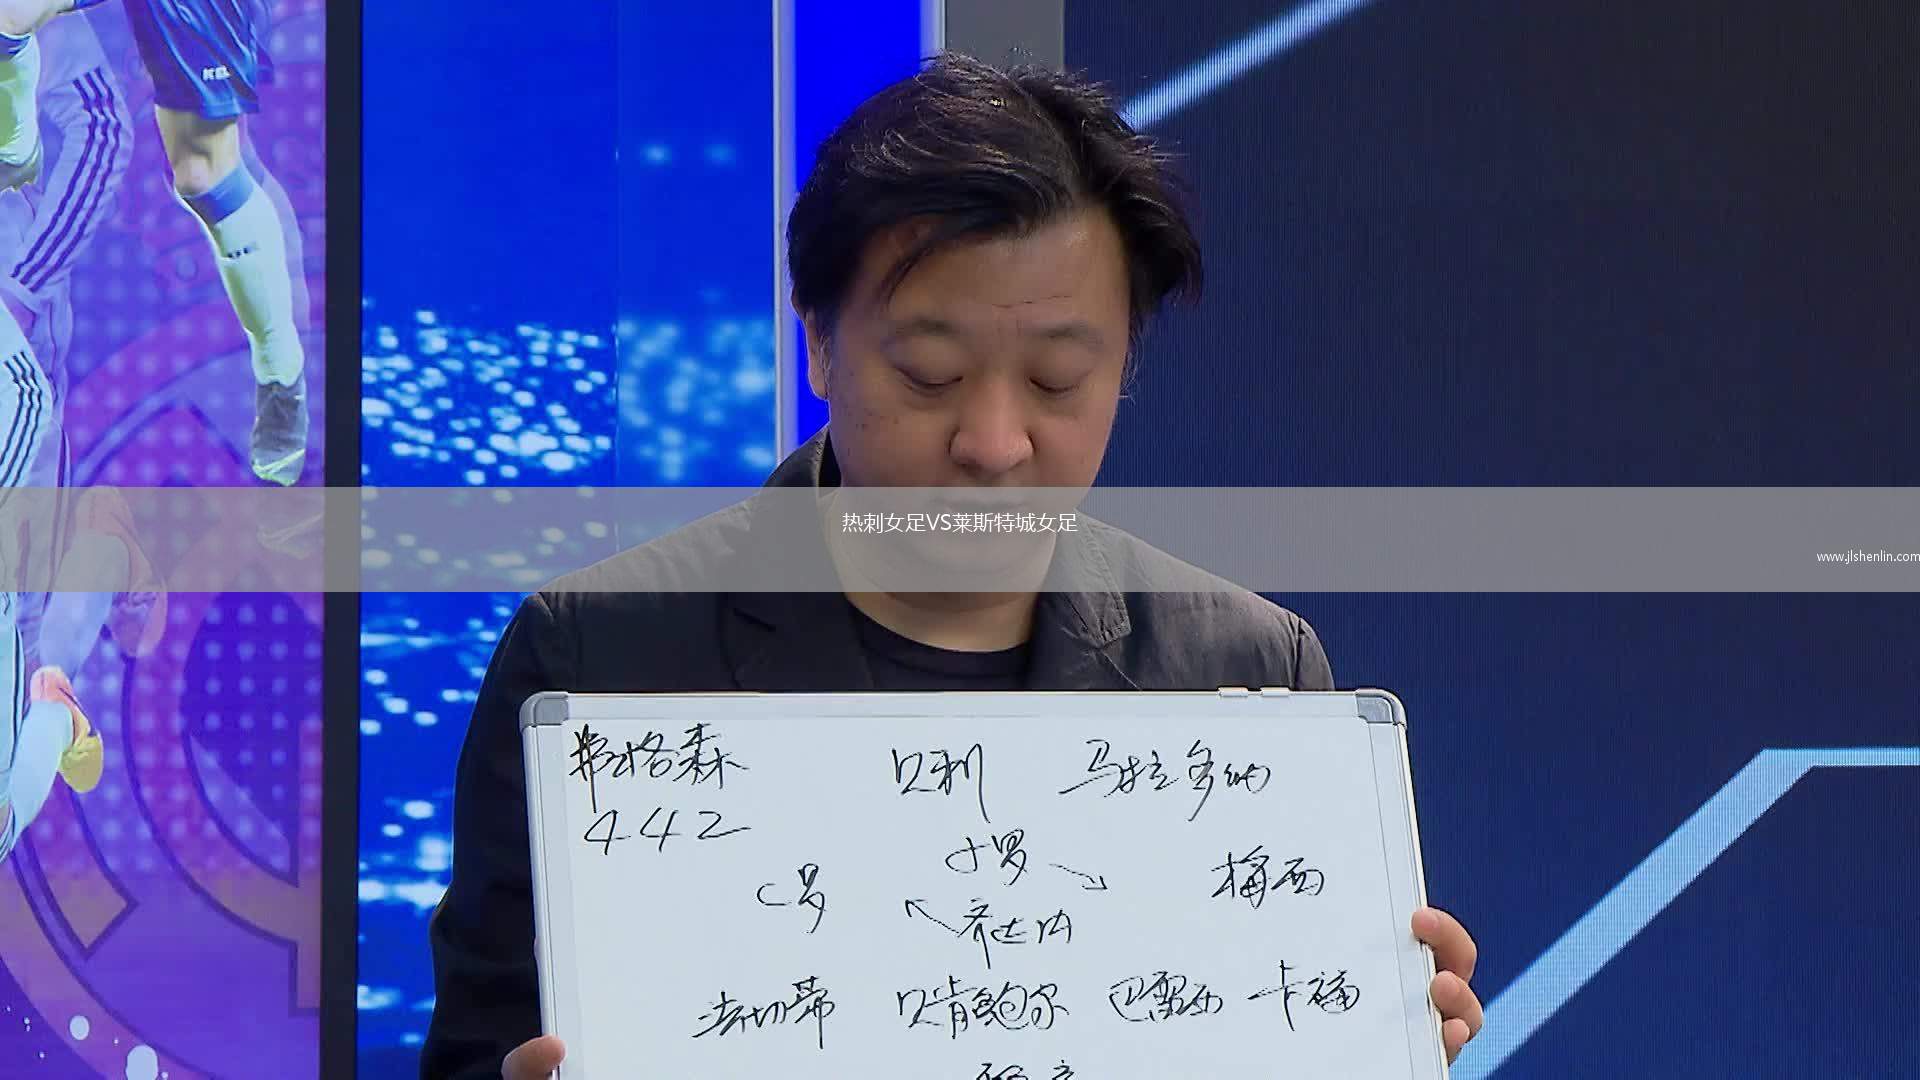 热刺女足VS莱斯特城女足
www.jlshenlin.com
弗格森 贝利 马拉多纳
442
小罗
C罗 梅西
齐达内
法切蒂 贝肯鲍尔 巴雷西 卡福